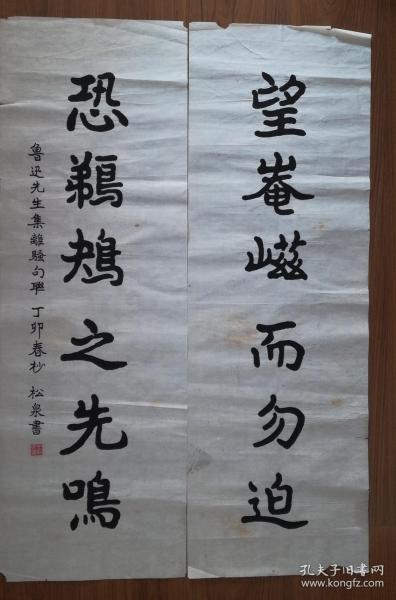 望崦嵫而勿迫
恐鵜鴂之先鳴
魯迅先生集離騷句聯 丁卯春杪 松泉書
孔夫子旧书网
www.kongfz.com